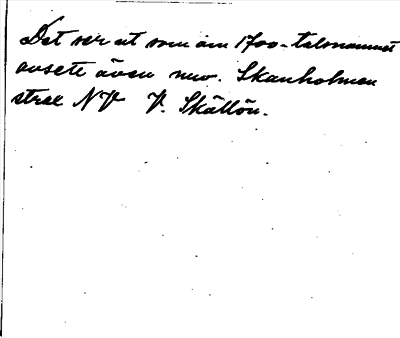 Det ser ut som om 1700-talsnamnet
avsett även nuv. Skanholmen
strax NV V. Skällön.